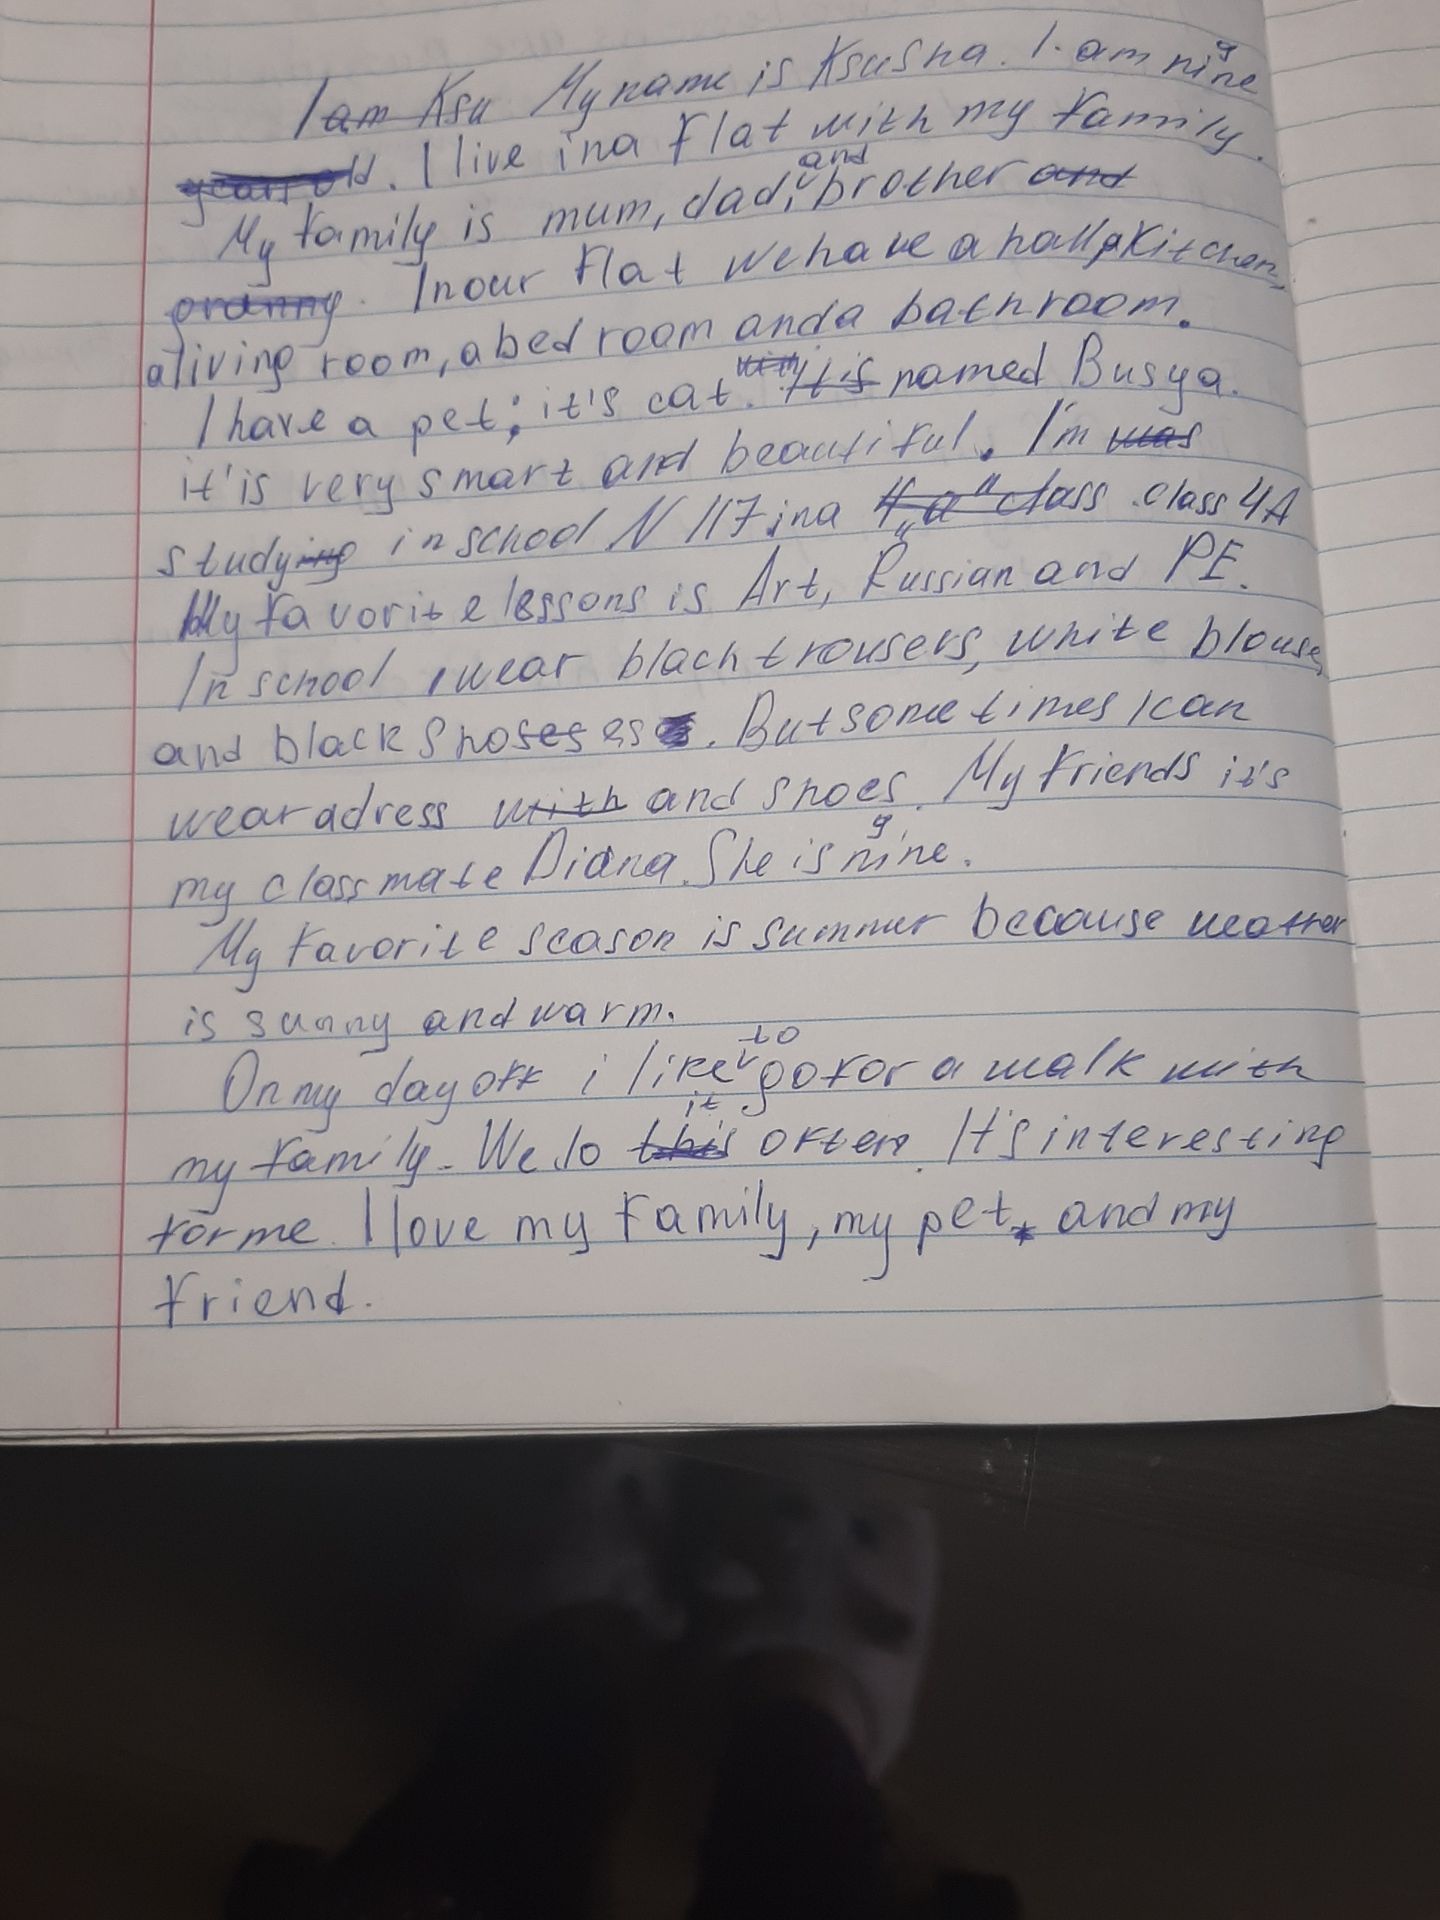 I am Ksu My name is Ksusha. I am nine 9
years old. I live in a flat with my family.
My family is mum, dad, and brother and
granny. In our flat we have a hall, a kitchen,
a living room, a bedroom and a bathroom.
I have a pet; it's cat. with It is named Busya.
it' is very smart and beautiful. I'm was
studying in school N 117 in a 4 „a" class. class 4A
My favorite lessons is Art, Russian and PE.
In school I wear black trousers, white blouse,
and black shoses es. But sometimes I can
wear a dress with and shoes. My friends it's
my classmate Diana. She is nine 9.
My favorite season is summer because weather
is sunny and warm.
On my day off i like to go for a walk with
my family. We do this it often. It's interesting
for me. I love my family, my pet and my
friend.